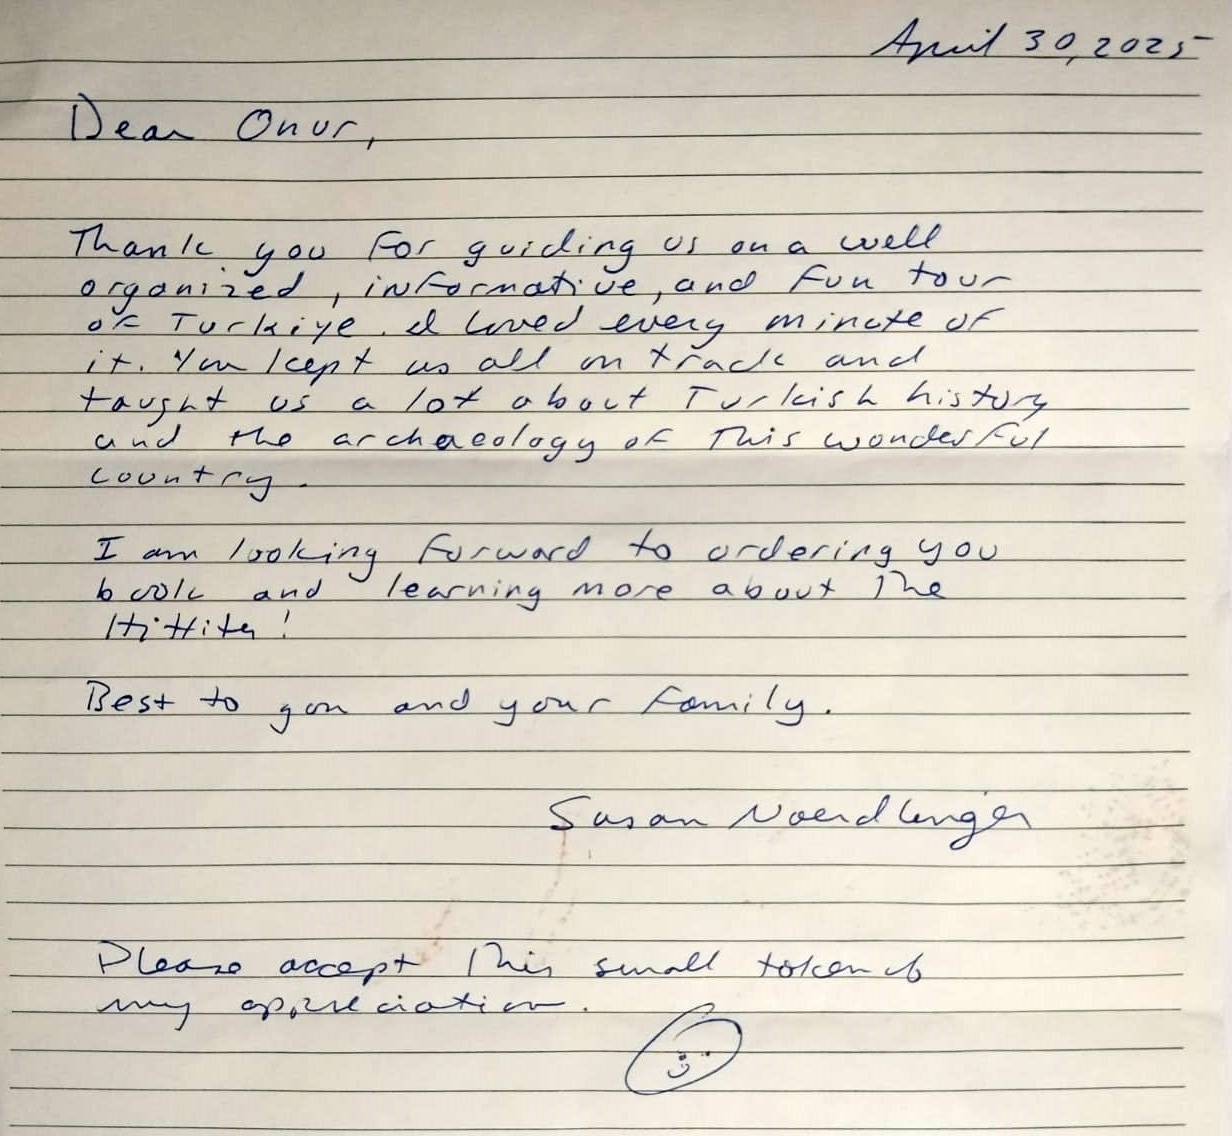 April 30, 2025
Dear Onur,
Thank you for guiding us on a well
organized, informative, and fun tour
of Turkiye. I loved every minute of
it. You kept us all on track and
taught us a lot about Turkish history
and the archaeology of this wonderful
country.
I am looking forward to ordering you
book and learning more about the
Hittites!
Best to you and your family.
Susan Noerdlinger
Please accept this small token of
my appreciation.